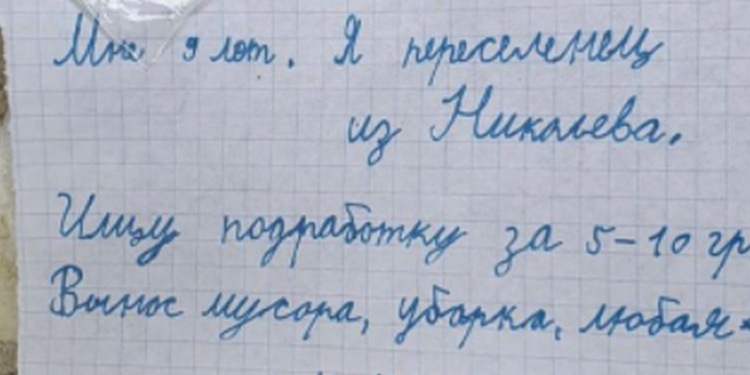 Мне 9 лет. Я переселенец
из Николаева.
Ищу подработку за 5-10 гр
Вынос мусора, уборка, любая